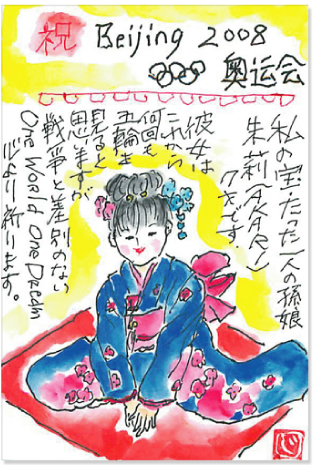 祝 Beijing 2008
奥运会
私の宝たった一人の孫娘
朱莉(AKARI)
7才です。
彼女は
これから
何回も
五輪を
見ると
思いますが
戦争と差別のない
One World One Dream
心より祈ります。